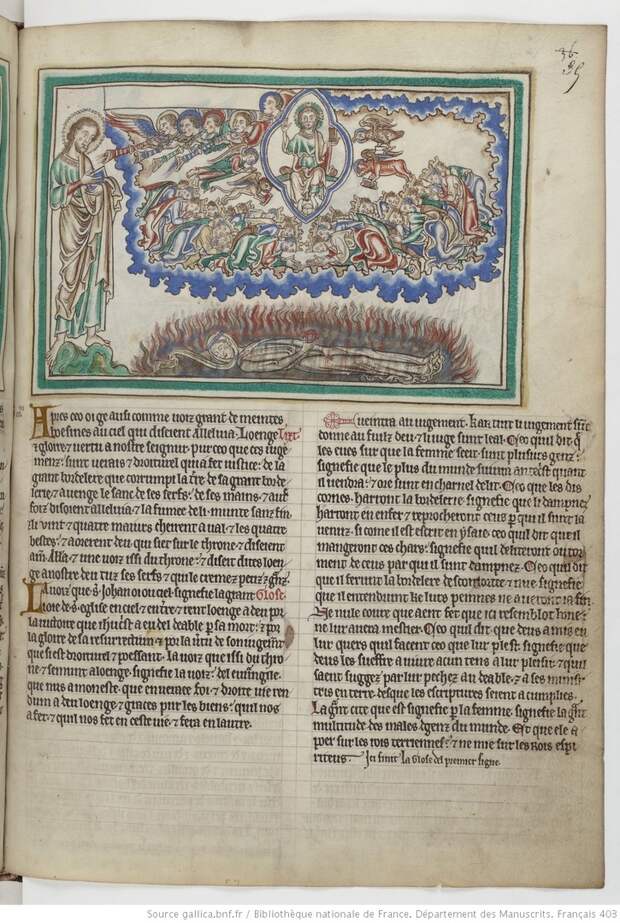 36
35
Apres ceo oi ge ausi comme uoiz grant de meintes
boesines au ciel qui diseient Alleluia: Loenge Tixt
⁊ gloire ⁊ uertu a nostre seignur pur ceo que ces iuge
menz: sunt uerais ⁊ droiturel qui a fet iustice: de la
grant bordelere que corrumpi la tere de sa grant borde
lerie ⁊ a uenge le sanc de ses serfs: de ses mains ⁊ autre
foiz disoient alleluia ⁊ la fumee de li munte sanz fin:
li uint ⁊ quatre maiurs cheirent a ual ⁊ les quatre
bestes: ⁊ aorerent deu qui sier sur le throne ⁊ diseient
am. Alla ⁊ une uoiz issi du throne: ⁊ diseit dites loen
ge a nostre deu tuz ses serfs ⁊ qui le cremez petiz ⁊ ganz
La uoiz que s. Iohan oi ou ciel: signefie la grant Glose
ioie de s. eglise en ciel ⁊ en tere ⁊ rent loenge a deu por
la uictoire que ihesu crist a eu del deable par sa mort: ⁊ por
la gloire de sa resurrectiun ⁊ por la uertu de son iugement
que est droiturel ⁊ poessant. La uoiz que issi du thro
ne ⁊ semunt a loenge: signefie la uoiz: del euuangile:
que nus amoneste: que en ueraie foi ⁊ droite uie ren
dum a deu loenge ⁊ graces pur les biens: quil nos
a fet ⁊ quil nos fet en ceste uie ⁊ fera en lautre.
ueintra au iugement. Kar tuit li iugement sunt
done au fuiz deu ⁊ li iuge sunt leal. O ceo quil dit que
les eues sur que la femme seit sunt plusurs genz:
signefie que le plus du munde siuera antecrist quant
il uendra: ⁊ ore sunt en charnel delit. O ceo que les dis
cornes: harront la bordelere: signefie que li dampnez
harront en enfer ⁊ reprocheront ceus par qui il sunt la
uenuz: si come il est escrit en ysaie. ceo quil dit que il
mangeront ces chars: signefie quil deliteront ou tor
ment de ceus par qui il sunt dampnez. O ceo quil dit
que il feront la bordelere desconfortee ⁊ nue: signefie
que il entendrunt ke lurs peinnes ne aueront ia fin.
De nule couerture que aient fet que ici resemblot bone:
ne lur auera mestier. O ceo quil dit: que deus a mis en
lur quers quil facent ceo que lur plest: signefie que
deus les sueffre a uiure a cun tens a lur plesir ⁊ quil
saent suggez par lur pechez au deable: ⁊ a ses minis
tres en terre: desque les escriptures seient acumplies.
La grant cite que est signefie par la femme: signefie la grant
multitude des males dgenz du munde. Est que ele a
poer sur les rois terriens: ⁊ ne mie sur les Rois espi
riteus. Ici finit la Glose del premier signe.
Source gallica.bnf.fr / Bibliothèque nationale de France. Département des Manuscrits. Français 403